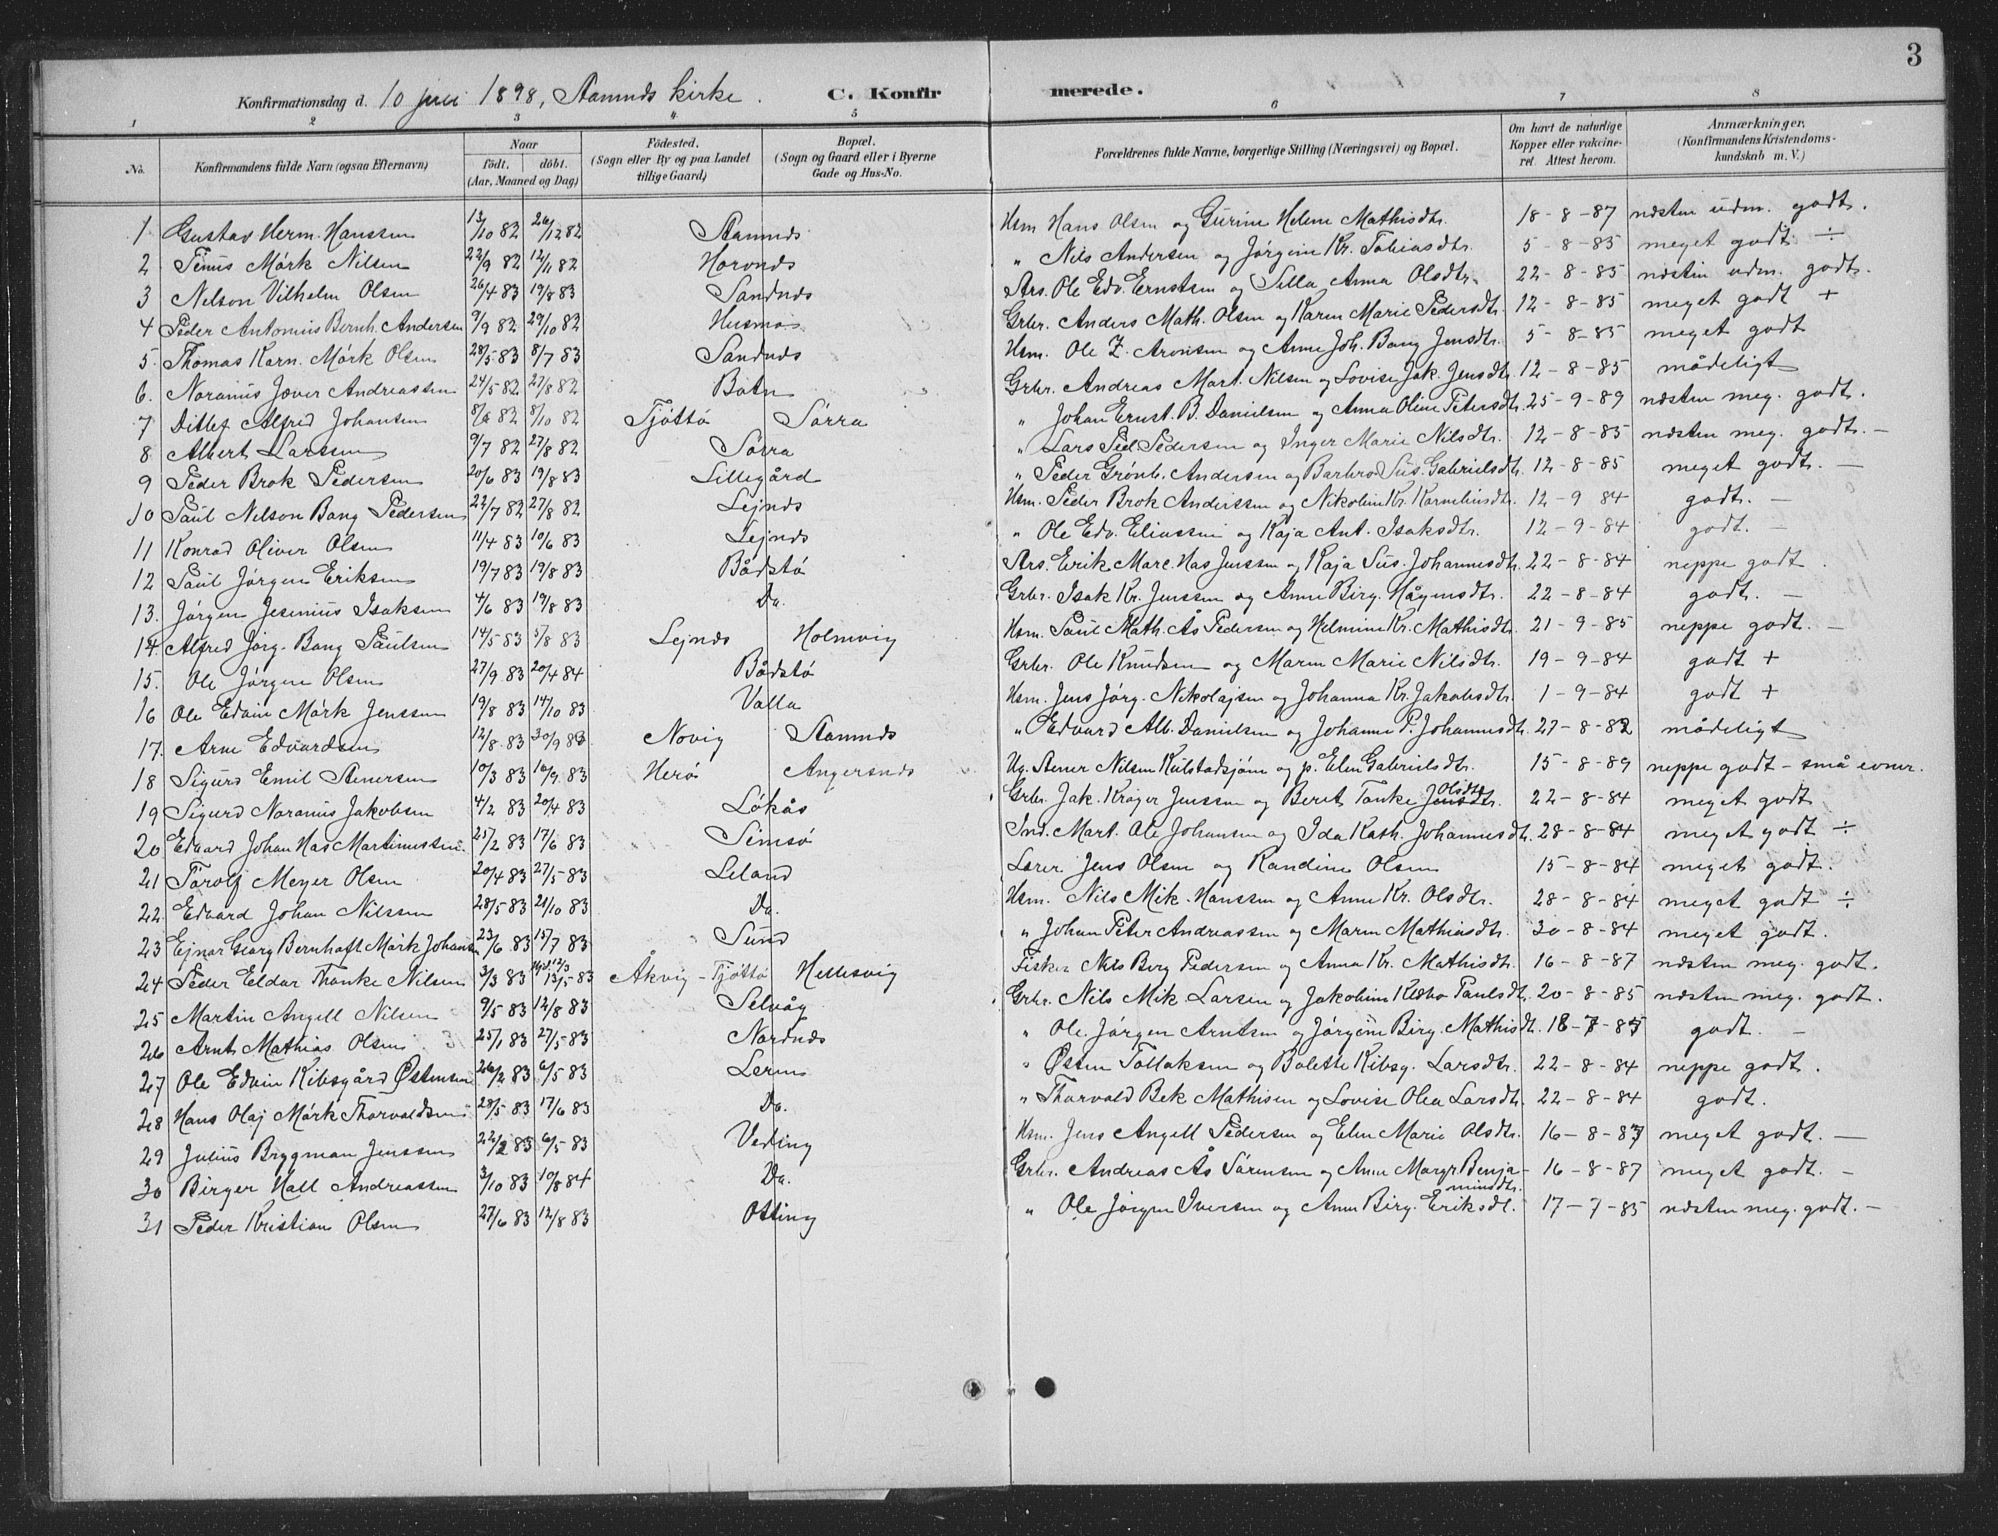 3
Konfirmationsdag d. 10 juli 1898, Stamnds kirke. C. Konfir merede.
1 2 3 4 5 6 7 8
No. Konfirmandens fulde Navn (ogsaa Efternavn) Naar født. døbt. (Aar, Maaned og Dag) Fødested. (Sogn eller By og paa Landet tillige Gaard) Bopæl. (Sogn og Gaard eller i Byerne Gade og Hus-No. Forældrenes fulde Navne, borgerlige Stilling (Næringsvei) og Bopæl. Om havt de naturlige Kopper eller vakcineret. Attest herom. Anmærkninger. (Konfirmandens Kristendomskundskab m. V.)
1 Gustav Herm. Hanssen 13/10 82 26/12 82 Stamnds Hsm Hans Olsen og Gurine Helene Mathisdtr. 18-8-87 næsten udm. godt.
2 Tinus Mørk Nilsen 22/9 82 12/11 82 Horvnds " Nils Andersen og Jørgine Kr. Tobiasdtr. 5-8-85 meget godt ÷
3 Nelson Vilhelm Olsen 26/4 83 19/8 83 Sandnds Ars. Ole Edv. Ernstsen og Silla Anna Olsdtr. 22-8-85 næsten udm. godt.
4 Peder Antonius Bernh. Andersen 9/9 82 29/10 82 Husmo Grbr. Anders Math. Olsen og Karen Marie Pedersdtr. 12-8-85 meget godt +
5 Thomas Korn. Mørk Olsen 28/5 83 8/7 83 Sandnds Hsm. Ole Z. Aronsen og Anne Joh. Bang Jensdtr. 5-8-85 meget godt
6. Noranius Jæver Andreassen 24/5 82 27/8 82 Botn Grbr. Andreas Mart. Nilsen og Lovise Jak. Jensdtr. 12-8-85 mådeligt
7 Ditlef Alfred Johansen 8/6 82 8/10 82 Tjøttø Sørra " Johan Ernst. B. Danielsen og Anna Oline Petersdtr. 25-9-89 næsten meg. godt.
8 Albert Larssen 9/7 82 27/8 82 Sørra " Lars Ped. Pedersen og Inger Marie Nilsdtr. 12-8-85 næsten meg. godt. -
9 Peder Brok Pedersen 20/6 83 19/8 83 Lillegård " Peder Grønb. Andersen og Barbro Sus. Gabrielsdtr. 12-8-85 meget godt. -
10 Paul Nelson Bang Pedersen 22/7 82 27/8 82 Lejnds Hsm. Peder Brok Anderssen og Nikoline Kr. Korneliusdtr. 12-9 84 godt. -
11 Konrad Oliver Olsen 11/4 83 10/6 83 Lejnds " Ole Edv. Eliassen og Kaja Ant. Isaksdtr. 12-9-84 godt. -
12 Paul Jørgen Eriksen 19/7 83 19/8 83 Bådstø Ars. Erik Marc. Has Jenssen og Kaja Sus. Johannesdtr. 22-8-84 neppe godt
13. Jørgen Jesenius Isaksen 4/6 83 19/8 83 Do. Grbr. Isak Kr. Jenssen og Anne Birg. Hågensdtr. 22-8-84 godt. -
14. Alfred Jørg. Bang Paulsen 14/5 83 5/8 83 Lejnds Holmvig Hsm. Paul Math. Ås Pedersen og Helmine Kr. Mathisdtr. 21-9-85 neppe godt. -
15. Ole Jørgen Olsen 27/9 83 20/4 84 Bådstø Grbr. Ole Knudsen og Maren Marie Nilsdtr. 19-9-84 godt +
16 Ole Edvin Mørk Jenssen 19/8 83 14/10 83 Valla Hsm. Jens Jørg. Nikolajsen og Johanna Kr. Jakobsdtr. 1-9-84 godt +
17. Arne Edvardsen 12/8 83 30/9 83 Novig Stamnds " Edvard Alb. Danielsen og Johanne P. Johannesdtr. 27-8-82 mådeligt
18 Sigurd Emil Stenersen 10/3 83 16/9 83 Herø Angersnds Ug. Stener Nilsen Keilstadsjøen og p. Elen Gabrielsdtr. 15-8-89 neppe godt - små evner.
19 Sigurd Noranius Jakobsen 4/2 83 20/4 83 Løkås Grbr. Jak. Krøger Jenssen og Berit Tanke Jensdtr. Olsdtr. 22-8-84 meget godt
20 Edvard Johan Has Martinussen 25/2 83 17/6 83 Simsø Ind. Mart. Ole Johansen og Ida Kath. Johannesdtr. 28-8-84 meget godt ÷
21 Torolf Meyer Olsen 20/4 83 27/5-83 Leland Lærer Jens Olsen og Randine Olsen 15-8-84 meget godt.
22. Edvard Johan Nilssen 28/5 83 21/10 83 Do. Hsm. Nils Mik. Hanssen og Anne Kr. Olsdtr. 28-8-84 meget godt ÷
23 Ejnar Georg Bernhaft Mørk Johansen 23/6 83 15/7 83 Sund " Johan Peter Andreassen og Maren Mathiasdtr. 30-8-84 meget godt.
24 Peder Eldar Thonke Nilsen 3/3 83 13/5-83 Åkvig - Tjøttø Hellesvig Fisker Nils Berg Pedersen og Anna Kr. Mathisdtr. 16-8-87 næsten meg. godt.
25 Martin Angell Nilsen 9/5 83 12/8 83 Selvåg Grbr. Nils Mik Larsen og Jakobine Klæbo Paulsdtr. 20-8-85 næsten meg. godt.
26 Arnt Mathias Olsen 25/1 83 27/5-83 Nordnds " Ole Jørgen Arntsen og Jørgine Birg. Mathisdtr. 18-7-85 godt. -
27 Ole Edvin Kibsgård Østensen 26/2 83 6/5 83 Leren " Østen Tollaksen og Bolette Kibsg. Larsdtr. 22-8-84 neppe godt.
28 Hans Olaj Mørk Thorvaldsen 28/5 83 17/6 83 Do. " Thorvald Bek Mathisen og Lovise Olea Larsdtr. 22-8-84 godt.
29 Julius Brygman Jenssen 22/2 83 6/5 83 Veding Hsm. Jens Angell Pedersen og Elen Marie Olsdtr. 16-8-87 meget godt. -
30 Birger Hall Andreassen 3/10 83 10/8 84 Do. Grbr. Andreas Ås Sørensen og Anne Margr. Benjaminsdtr. 16-8-87 meget godt. -
31 Peder Kristian Olsen 27/6 83 12/8 83 Offing " Ole Jørgen Iversen og Anne Birg. Eriksdt. 17-7-85 næsten meg. godt. -